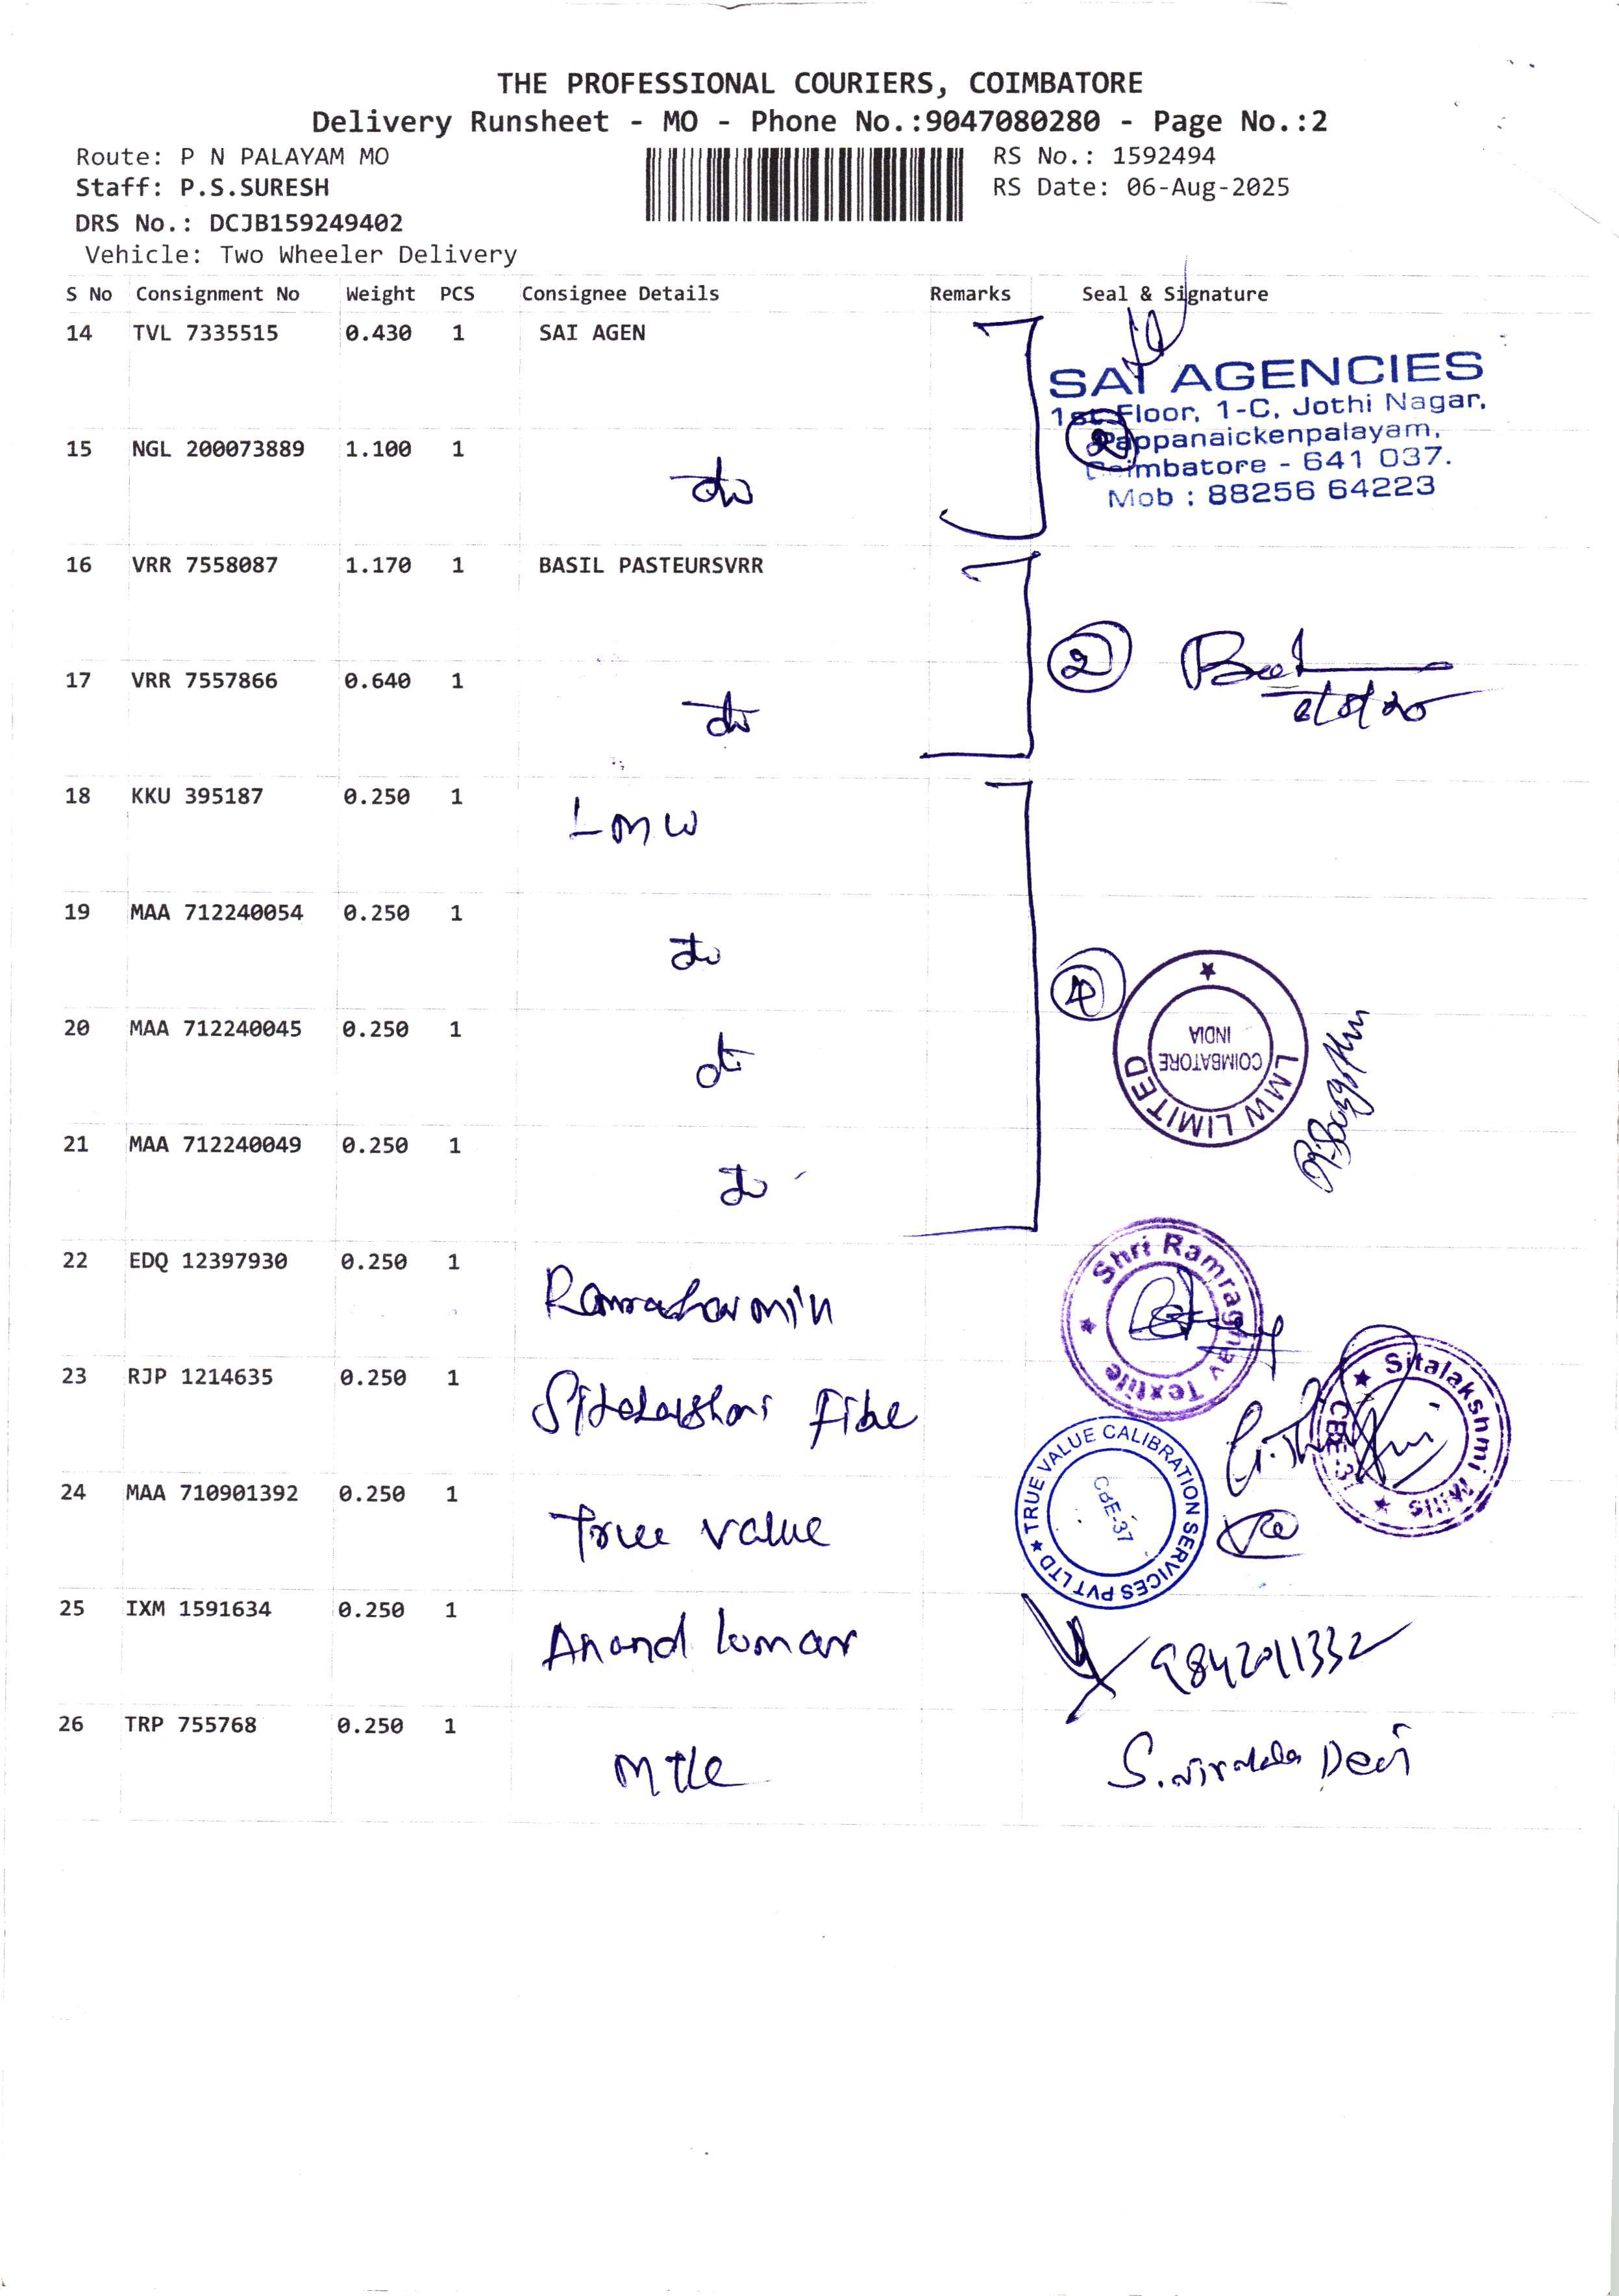 THE PROFESSIONAL COURIERS, COIMBATORE
Delivery Runsheet - MO - Phone No.:9047080280 - Page No.:2
Route: P N PALAYAM MO
RS No.: 1592494
Staff: P.S.SURESH
RS Date: 06-Aug-2025
DRS No.: DCJB159249402
Vehicle: Two Wheeler Delivery
S No Consignment No Weight PCS Consignee Details Remarks Seal & Signature
14 TVL 7335515 0.430 1 SAI AGEN
SAI AGENCIES
1st Floor, 1-C, Jothi Nagar,
Pappanaickenpalayam,
Coimbatore - 641 037.
Mob : 88256 64223
2
15 NGL 200073889 1.100 1 do
16 VRR 7558087 1.170 1 BASIL PASTEURSVRR
2
17 VRR 7557866 0.640 1 do
18 KKU 395187 0.250 1 LMW
19 MAA 712240054 0.250 1 do
4
LMW LIMITED
COIMBATORE
INDIA
20 MAA 712240045 0.250 1 do
21 MAA 712240049 0.250 1 do
22 EDQ 12397930 0.250 1
Shri Ramraghav Textile
23 RJP 1214635 0.250 1
Sitalakshmi Mills
CBE-37
24 MAA 710901392 0.250 1 True value
TRUE VALUE CALIBRATION SERVICES PVT LTD
CBE-37
25 IXM 1591634 0.250 1 Anand kumar 9842011332
26 TRP 755768 0.250 1 S. Nirmala Devi